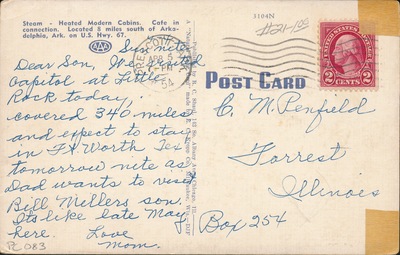 Steam - Heated Modern Cabins. Cafe in
connection. Located 5 miles south of Arka-
delphia, Ark. on U.S. Hwy. 67.
AAA
3104N
#21-1.00
Sun nite
Dear Son, We visited
Capitol at Little
Rock today,
covered 340 miles
and expect to stay
in Ft Worth Tex
tomorrow nite as
Dad wants to visit
Bill Millers son.
Its like late May
here. Love
Mom.
PC083
PRESCOTT
APR
5
54
UNITED STATES POSTAGE
2 CENTS 2
POST CARD
C. M. Penfield
Forrest
Illinois
Box 254